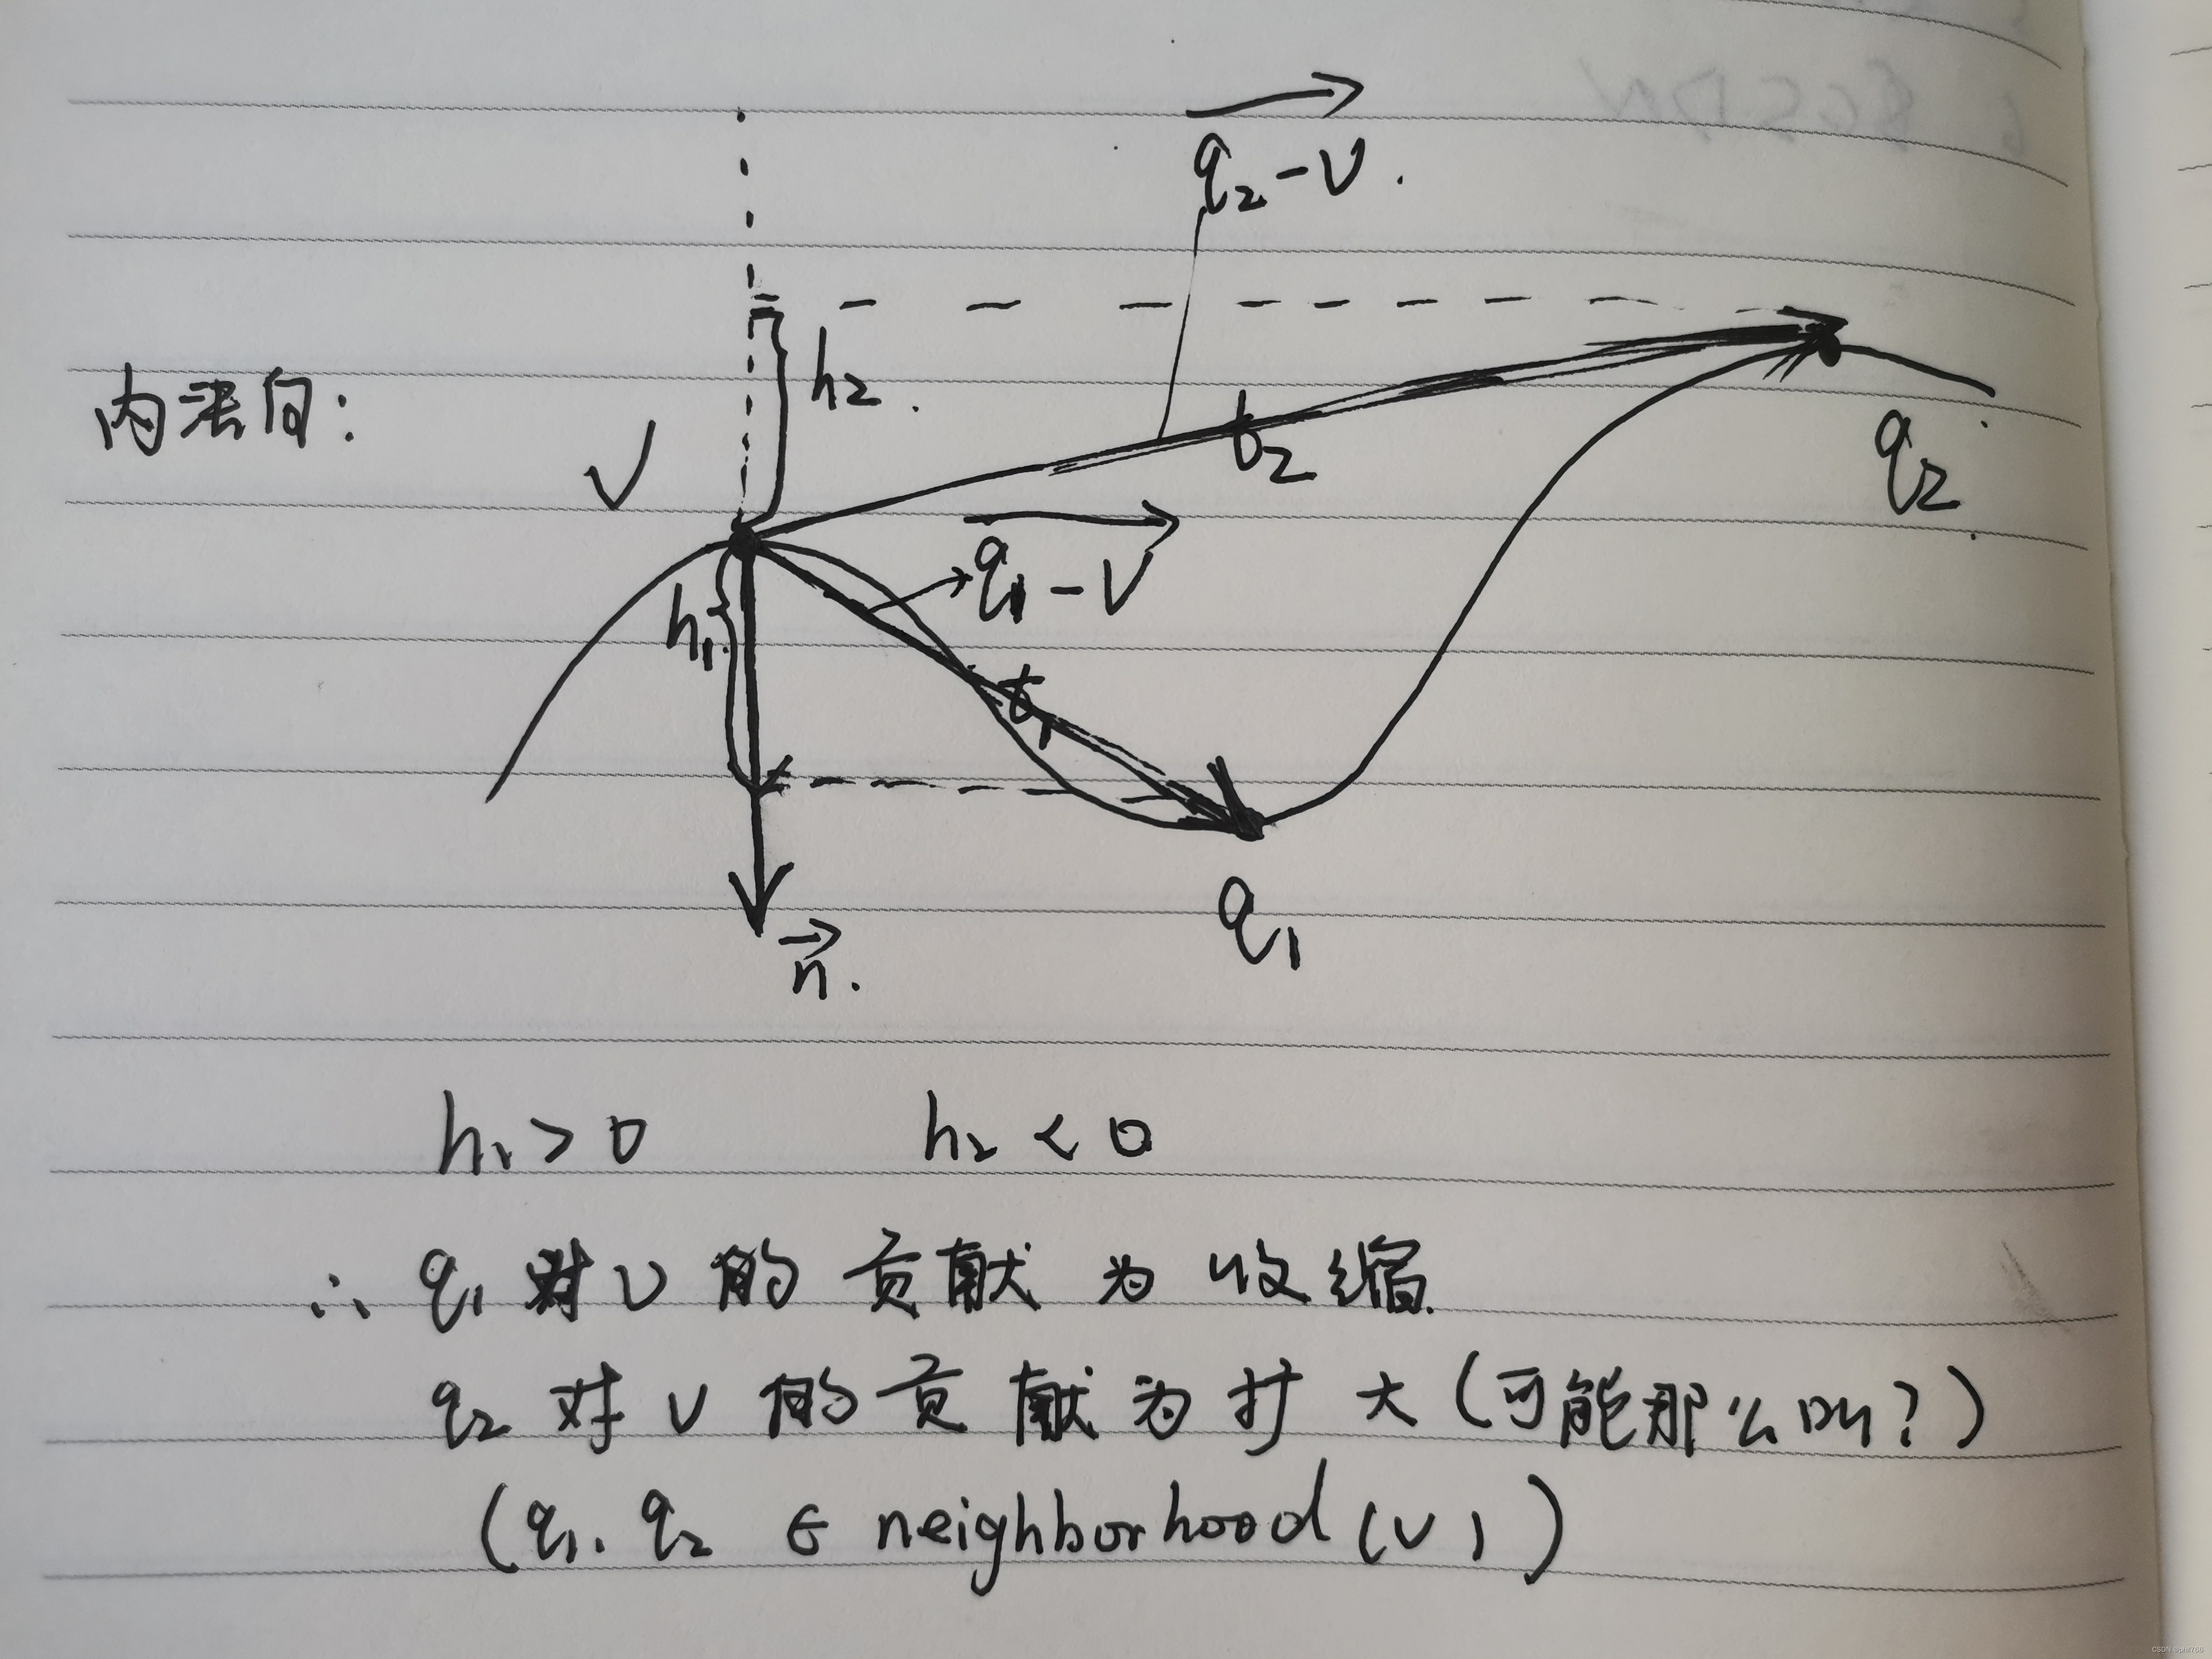 q₂-v.
h₂.
内法向:
v
t₂
q₂
q₁-v
h₁.
t₁
q₁
n.
h₁>0 h₂<0
∴ q₁对v的贡献为收缩.
q₂对v的贡献为扩大(可能那么叫?)
(q₁.q₂ ∈ neighborhood(v))
CSDN